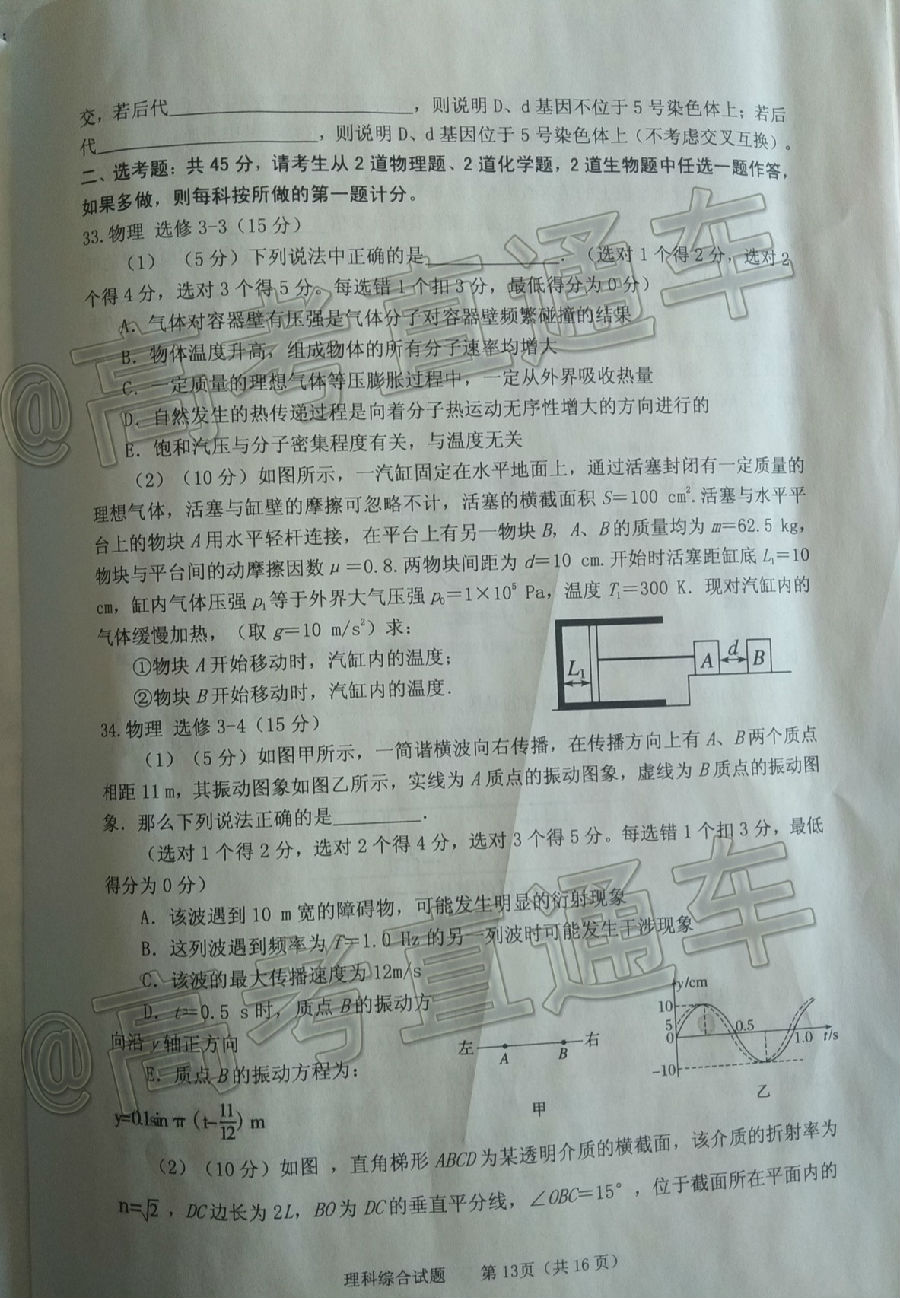 交，若后代____________________，则说明D、d基因不位于5号染色体上；若后
代____________________，则说明D、d基因位于5号染色体上（不考虑交叉互换）。
二、选考题：共45分，请考生从2道物理题、2道化学题，2道生物题中任选一题作答，
如果多做，则每科按所做的第一题计分。
33.物理 选修3-3（15分）
（1）（5分）下列说法中正确的是____________．（选对1个得2分，选对2
个得4分，选对3个得5分。每选错1个扣3分，最低得分为0分）
A．气体对容器壁有压强是气体分子对容器壁频繁碰撞的结果
B．物体温度升高，组成物体的所有分子速率均增大
C．一定质量的理想气体等压膨胀过程中，一定从外界吸收热量
D．自然发生的热传递过程是向着分子热运动无序性增大的方向进行的
E．饱和汽压与分子密集程度有关，与温度无关
（2）（10分）如图所示，一汽缸固定在水平地面上，通过活塞封闭有一定质量的
理想气体，活塞与缸壁的摩擦可忽略不计，活塞的横截面积S=100 cm².活塞与水平平
台上的物块A用水平轻杆连接，在平台上有另一物块B，A、B的质量均为m=62.5 kg，
物块与平台间的动摩擦因数μ=0.8.两物块间距为d=10 cm.开始时活塞距缸底L₁=10
cm，缸内气体压强p₁等于外界大气压强p₀=1×10⁵ Pa，温度T₁=300 K．现对汽缸内的
气体缓慢加热，（取g=10 m/s²）求：
①物块A开始移动时，汽缸内的温度；
②物块B开始移动时，汽缸内的温度．
L₁
A
d
B
34.物理 选修3-4（15分）
（1）（5分）如图甲所示，一简谐横波向右传播，在传播方向上有A、B两个质点
相距11m，其振动图象如图乙所示，实线为A质点的振动图象，虚线为B质点的振动图
象．那么下列说法正确的是________．
（选对1个得2分，选对2个得4分，选对3个得5分。每选错1个扣3分，最低
得分为0分）
A．该波遇到10 m宽的障碍物，可能发生明显的衍射现象
B．这列波遇到频率为f=1.0 Hz的另一列波时可能发生干涉现象
C．该波的最大传播速度为12m/s
D．t=0.5 s时，质点B的振动方
向沿y轴正方向
E．质点B的振动方程为：
y=0.1sinπ(t-11/12)m
左
A
B
右
甲
y/cm
10
5
0
-10
0.5
1.0
t/s
乙
（2）（10分）如图 ，直角梯形ABCD为某透明介质的横截面，该介质的折射率为
n=√2，DC边长为2L，BO为DC的垂直平分线，∠OBC=15°，位于截面所在平面内的
理科综合试题 第13页（共16页）
@高考直通车
@高考直通车